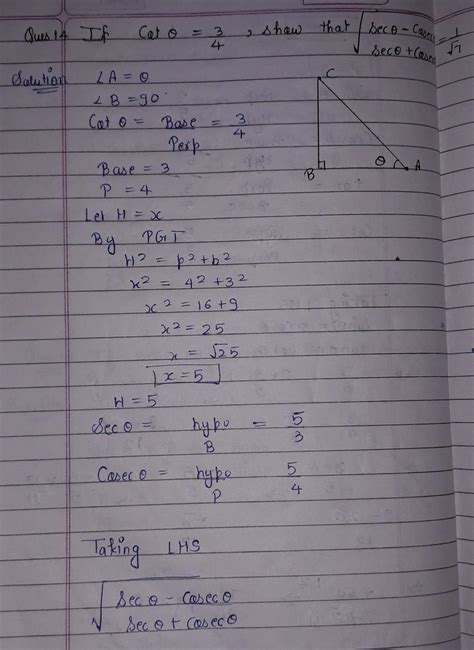 Ques 14 If Cot θ = 3/4, show that √(sec θ - cosec / sec θ + cosec) = 1/√7
Solution ∠A = θ
∠B = 90
Cot θ = Base/Perp = 3/4
Base = 3
P = 4
Let H = x
By PGT
H² = p² + b²
x² = 4² + 3²
x² = 16 + 9
x² = 25
x = √25
x = 5
H = 5
Sec θ = hypo/B = 5/3
Cosec θ = hypo/P 5/4
Taking LHS
√(sec θ - cosec θ / sec θ + cosec θ)
C
B
θ
A